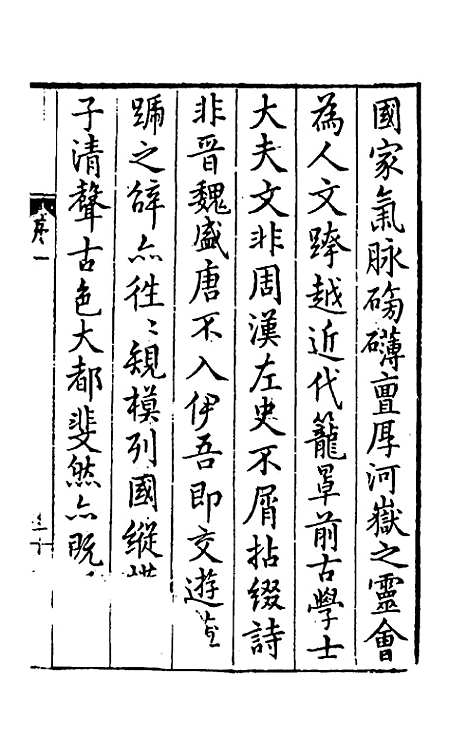 國家氣脉磅礴亶厚河嶽之靈會
為人文跨越近代籠罩前古學士
大夫文非周漢左史不屑拈綴詩
非晋魏盛唐不入伊吾即交遊
蹏之辞亦徃〻規模列國縱
子清聲古色大都斐然亦既
序一